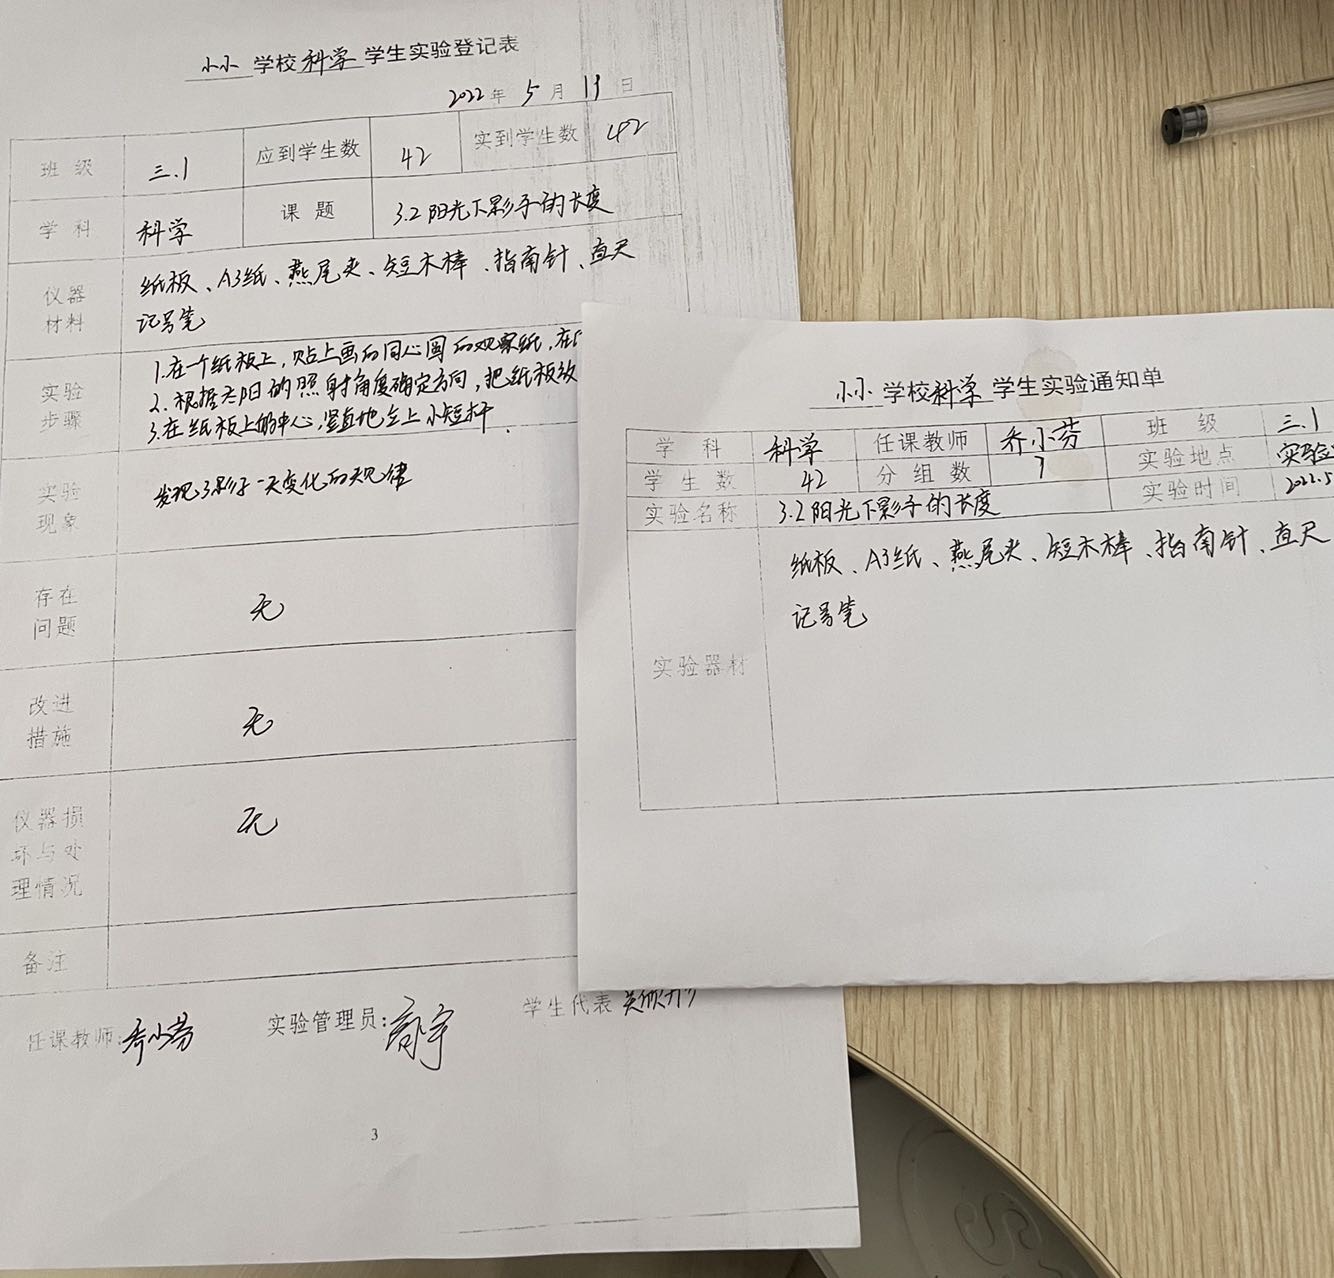 小小 学校 科学 学生实验登记表
2022 年 5 月 11 日
班级 三.1 应到学生数 42 实到学生数 42
学科 科学 课题 3.2 阳光下影子的长度
仪器材料 纸板、A3纸、燕尾夹、短木棒、指南针、直尺
记号笔
实验步骤
1.在一个纸板上,贴上画的同心圆的观察纸,在
2.根据太阳的照射角度确定方向,把纸板放
3.在纸板上的中心,竖直地立上小短杆.
实验现象 发现了影子一天变化的规律
存在问题 无
改进措施 无
仪器损坏与处理情况 无
备注
任课教师:乔小芬 实验管理员: 学生代表
3
小小 学校 科学 学生实验通知单
学科 科学 任课教师 乔小芬 班级 三.1
学生数 42 分组数 7 实验地点 实验
实验名称 3.2 阳光下影子的长度 实验时间 2022.5
实验器材
纸板、A3纸、燕尾夹、短木棒、指南针、直尺
记号笔